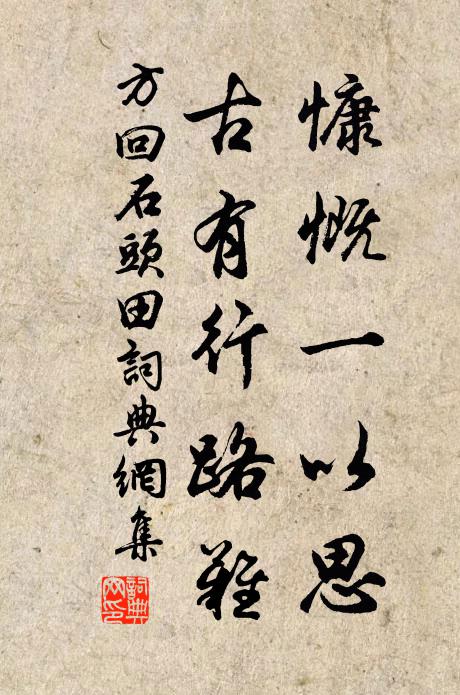 慷慨一以思
古有行路難
方回石頭田詞典網集
詞典网印